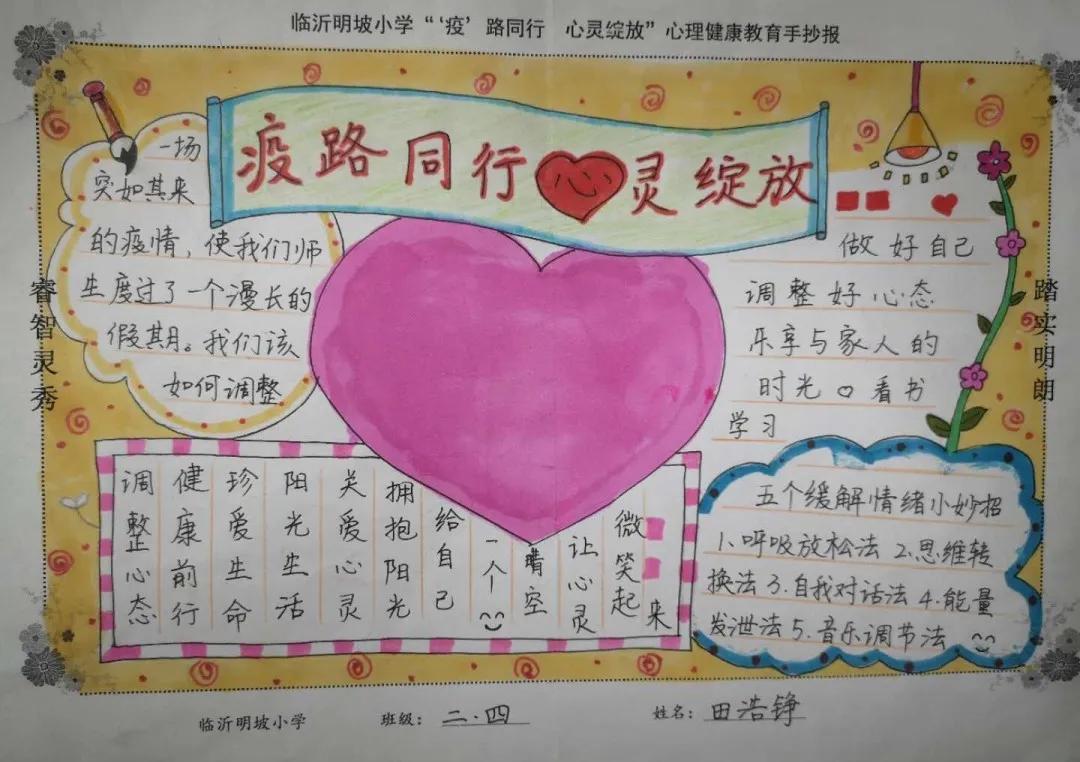 临沂明坡小学“‘疫’路同行 心灵绽放”心理健康教育手抄报
疫路同行心灵绽放
睿智灵秀
踏实明朗
一场
突如其来
的疫情，使我们师
生度过了一个漫长的
假期。我们该
如何调整
做好自己
调整好心态
乐享与家人的
时光♡看书
学习
调整心态
健康前行
珍爱生命
阳光生活
关爱心灵
拥抱阳光
给自己
一个
晴空
让心灵
微笑起
来
五个缓解情绪小妙招
1.呼吸放松法 2.思维转
换法 3.自我对话法 4.能量
发泄法 5.音乐调节法
临沂明坡小学 班级：二.四 姓名：田浩铮